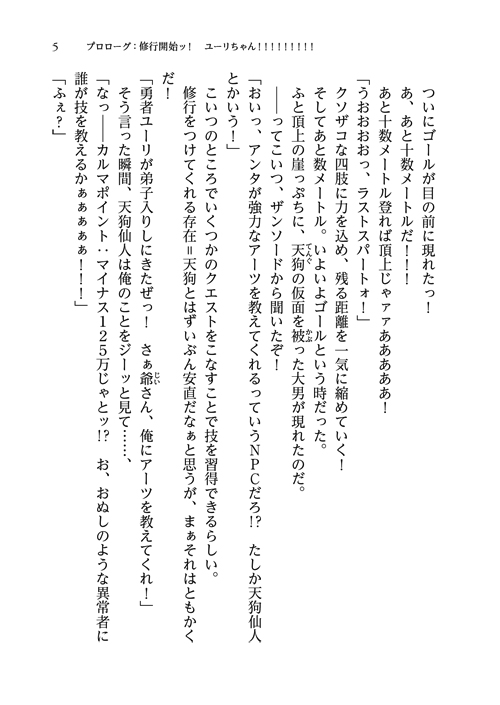 5　プロローグ：修行開始ッ！　ユーリちゃん！！！！！！！！！
ついにゴールが目の前に現れたっ！
あ、あと十数メートルだ！！！
あと十数メートル登れば頂上じゃァァああああああ！
「うおおおおっ、ラストスパートォ！」
クソザコな四肢に力を込め、残る距離を一気に縮めていく！
そしてあと数メートル。いよいよゴールという時だった。
ふと頂上の崖っぷちに、天狗の仮面を被った大男が現れたのだ。
――ってこいつ、ザンソードから聞いたぞ！
「おいっ、アンタが強力なアーツを教えてくれるっていうNPCだろ!?　たしか天狗仙人
とかいう！」
こいつのところでいくつかのクエストをこなすことで技を習得できるらしい。
修行をつけてくれる存在＝天狗とはずいぶん安直だなぁと思うが、まぁそれはともかく
だ！
「勇者ユーリが弟子入りしにきたぜっ！　さぁ爺さん、俺にアーツを教えてくれ！」
そう言った瞬間、天狗仙人は俺のことをジーッと見て……、
「なっ――カルマポイント：マイナス125万じゃとッ!?　お、おぬしのような異常者に
誰が技を教えるかぁぁぁぁぁ！！！」
「ふぇ？」